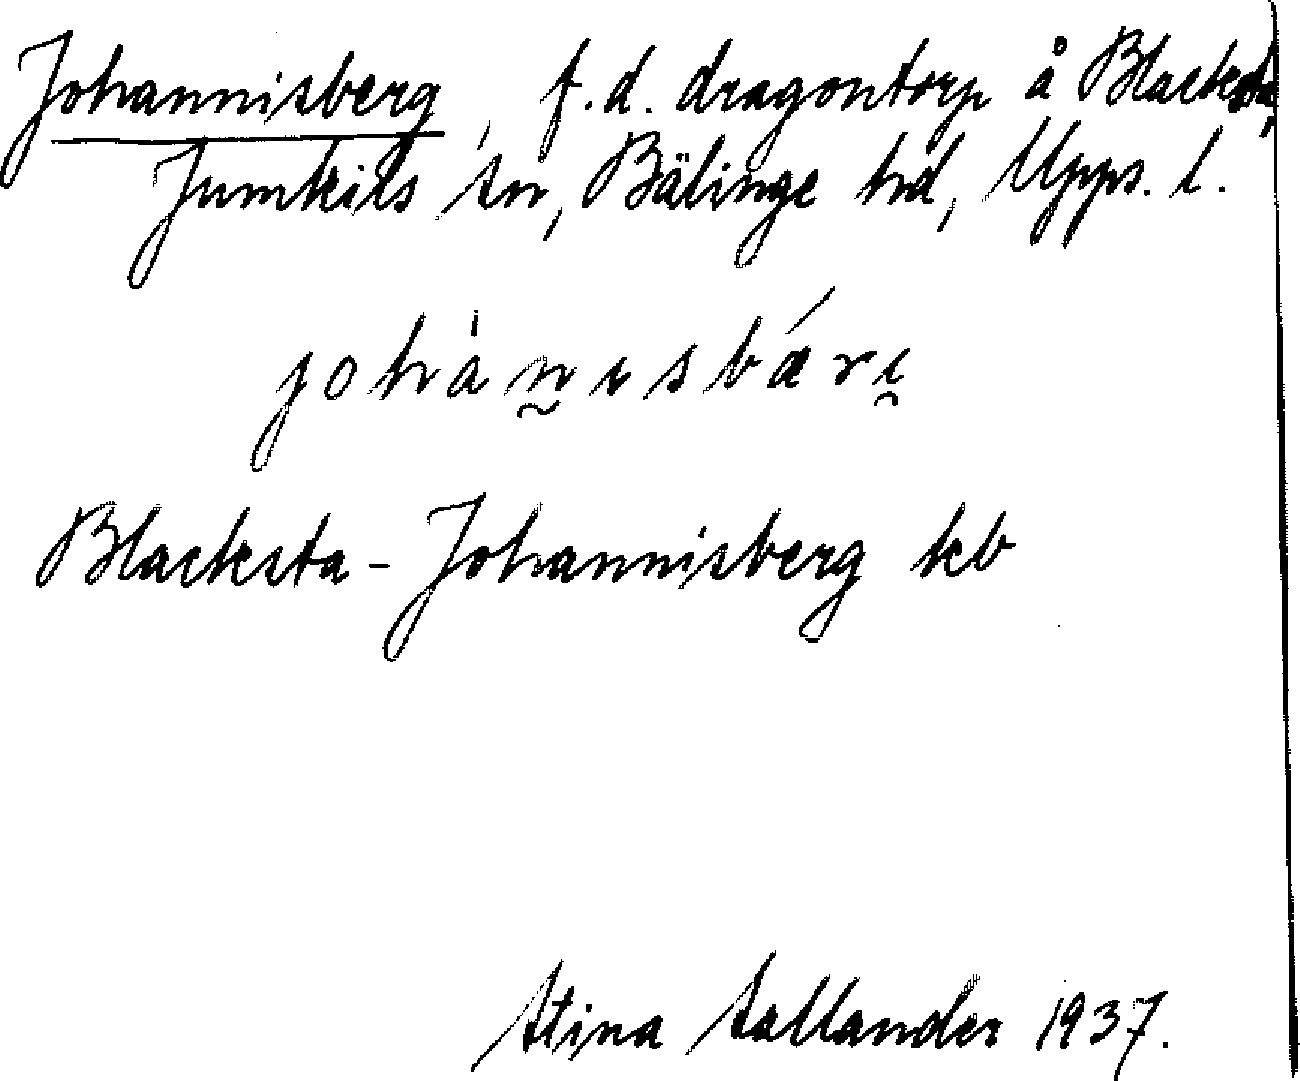 Johannisberg, f.d. dragontorp å Blacksta,
Jumkils sn, Bälinge hd, Upps. l.
johànisbári
Blacksta-Johannisberg kb
Stina Sallander 1937.